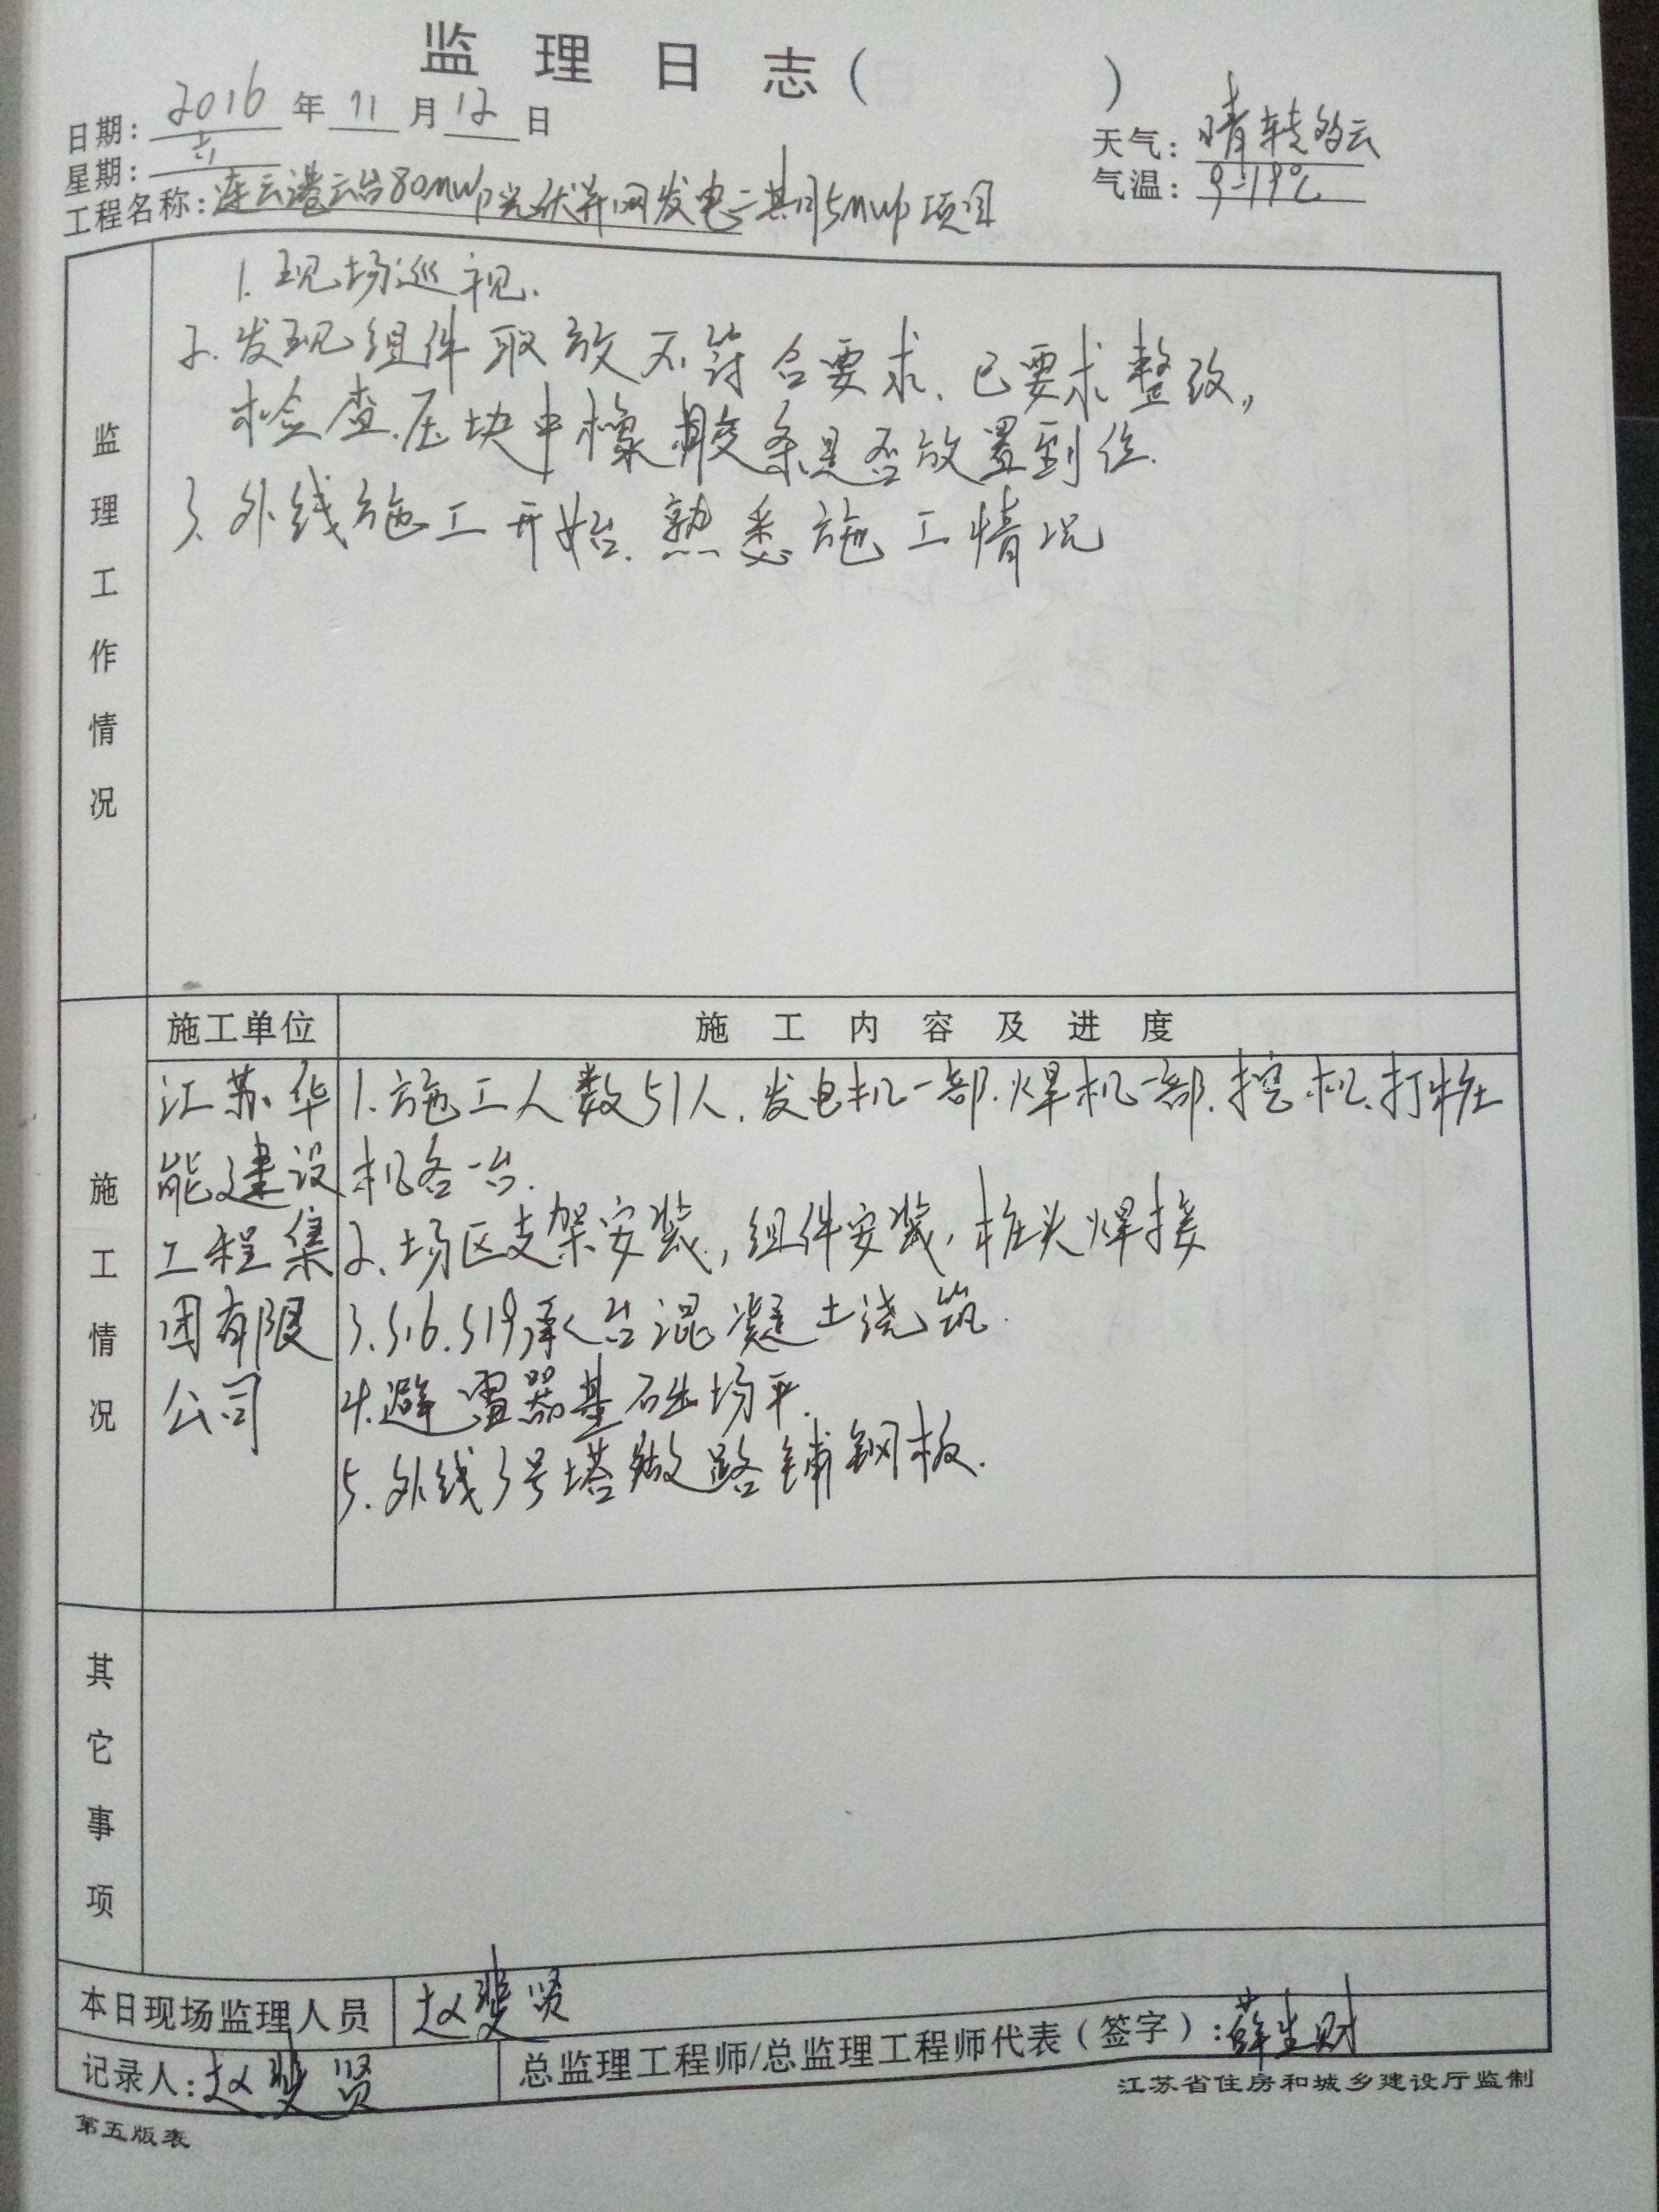 监理日志(          )
日期：2016年11月12日
天气：晴转多云
星期：六
气温：9-19℃
工程名称：连云港云台80MWp光伏并网发电二期15MWp项目
监理工作情况
1.现场巡视.
2.发现组件取放不符合要求、已要求整改,,
检查.压块中橡胶条是否放置到位.
3.外线施工开始.熟悉施工情况
施工单位
施工内容及进度
施工情况
江苏华
能建设
工程集
团有限
公司
1.施工人数51人.发电机一部.焊机一部.挖机.打桩
机各一台.
2.场区支架安装,组件安装,桩头焊接
3.S16.S19承台混凝土浇筑.
4.避雷器基础场平.
5.外线3号塔做路铺钢板.
其它事项
本日现场监理人员
赵斐贤
记录人:赵斐贤
总监理工程师/总监理工程师代表(签字):薛生财
江苏省住房和城乡建设厅监制
第五版表